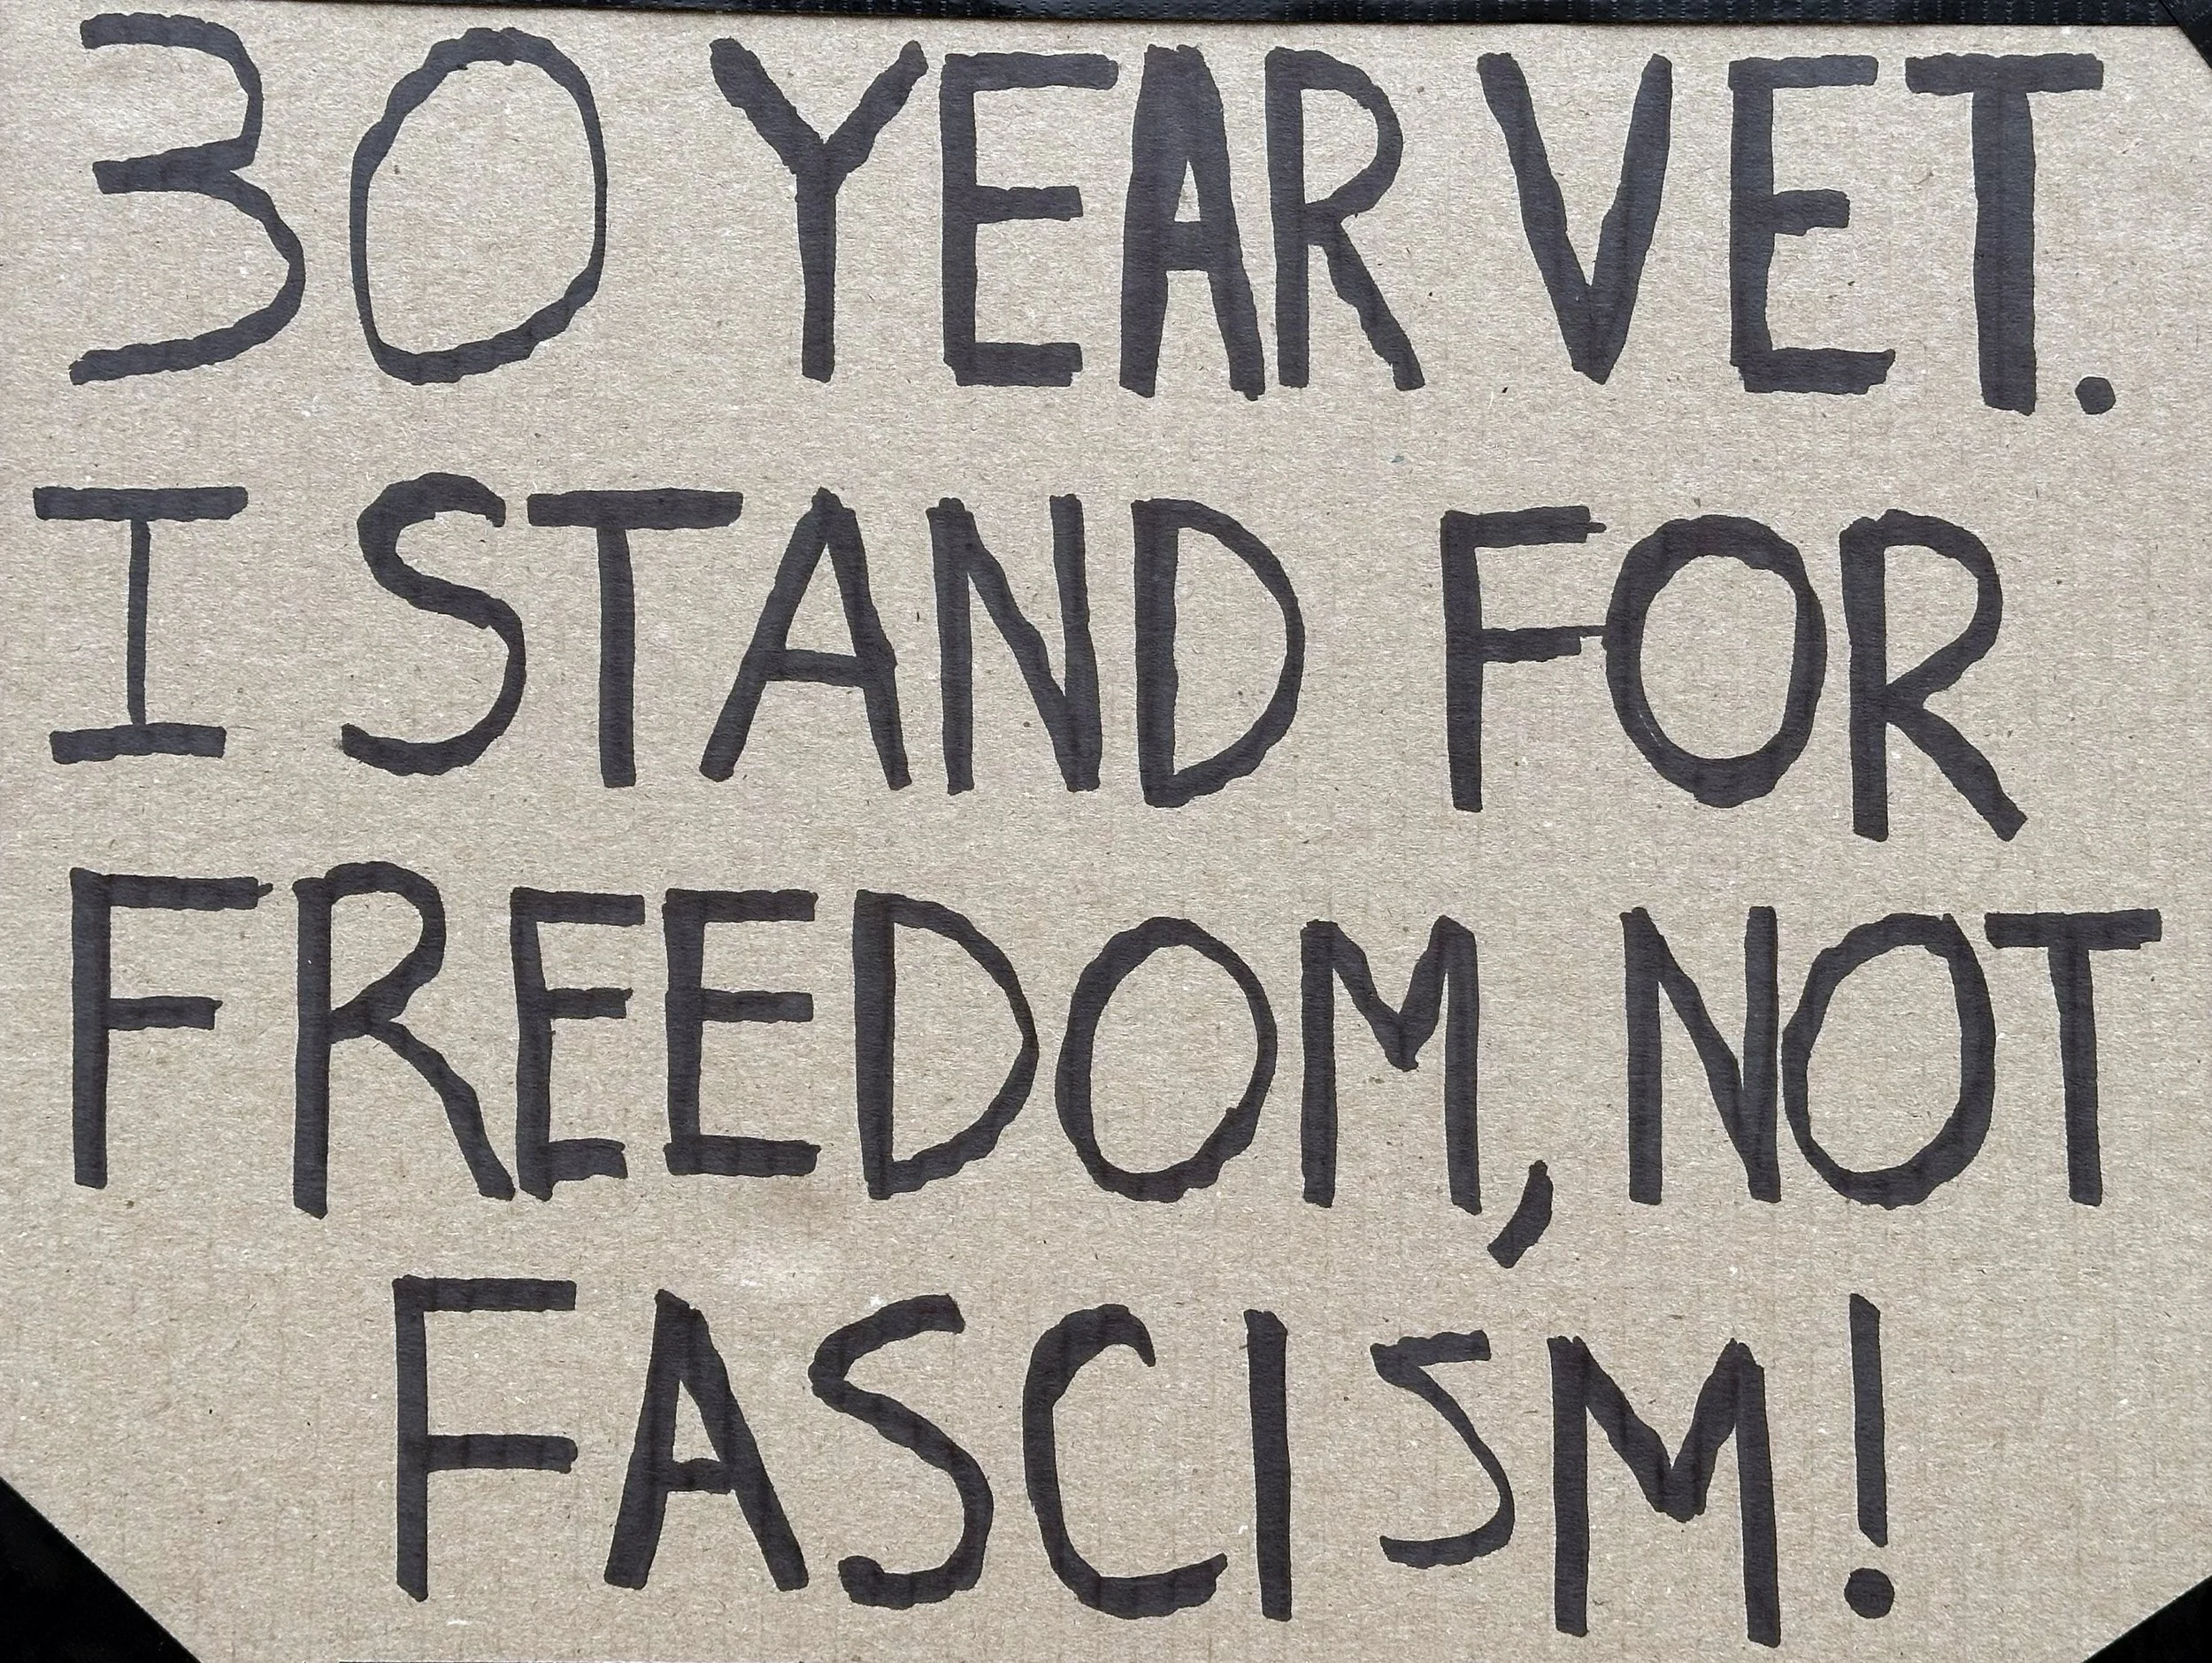 30 YEAR VET.
I STAND FOR
FREEDOM, NOT
FASCISM!